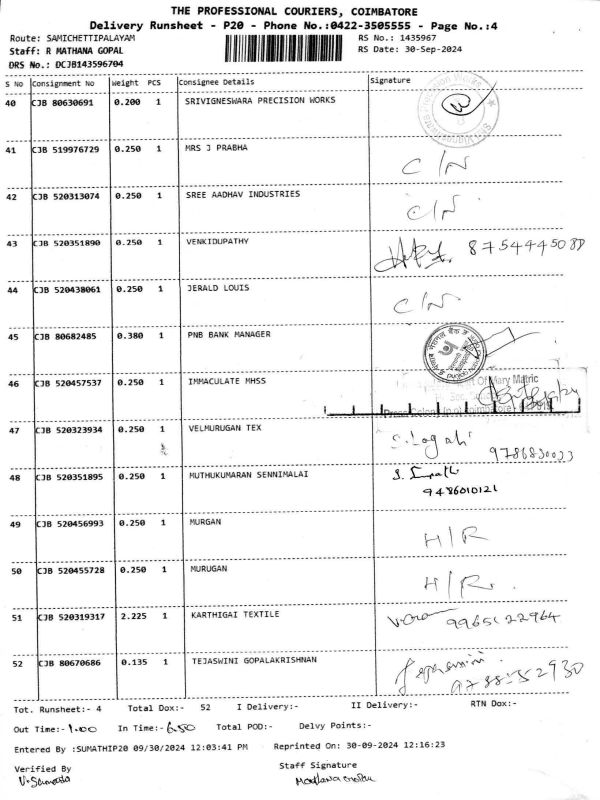 THE PROFESSIONAL COURIERS, COIMBATORE
Delivery Runsheet - P20 - Phone No.:0422-3505555 - Page No.:4
Route: SAMICHETTIPALAYAM RS No.: 1435967
Staff: R MATHANA GOPAL RS Date: 30-Sep-2024
DRS No.: DCJB143596704
S No Consignment No Weight PCS Consignee Details Signature
40 CJB 80630691 0.200 1 SRIVIGNESWARA PRECISION WORKS
41 CJB 519976729 0.250 1 MRS J PRABHA C/N
42 CJB 520313074 0.250 1 SREE AADHAV INDUSTRIES C/N
43 CJB 520351890 0.250 1 VENKIDUPATHY
44 CJB 520438061 0.250 1 JERALD LOUIS C/N
45 CJB 80682485 0.380 1 PNB BANK MANAGER
46 CJB 520457537 0.250 1 IMMACULATE MHSS Of Mary Matric
47 CJB 520323934 0.250 1 VELMURUGAN TEX
48 CJB 520351895 0.250 1 MUTHUKUMARAN SENNIMALAI
9486010121
49 CJB 520456993 0.250 1 MURGAN H/R
50 CJB 520455728 0.250 1 MURUGAN H/R.
51 CJB 520319317 2.225 1 KARTHIGAI TEXTILE 9965122964
52 CJB 80670686 0.135 1 TEJASWINI GOPALAKRISHNAN
Tot. Runsheet:- 4 Total Dox:- 52 I Delivery:- II Delivery:- RTN Dox:-
Out Time:- 1.00 In Time:- 6.50 Total POD:- Delvy Points:-
Entered By :SUMATHIP20 09/30/2024 12:03:41 PM Reprinted On: 30-09-2024 12:16:23
Verified By Staff Signature